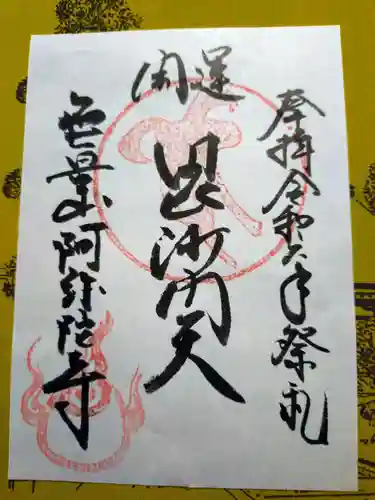 奉拝令和六年祭礼
開運
毘沙門天
山阿弥陀寺